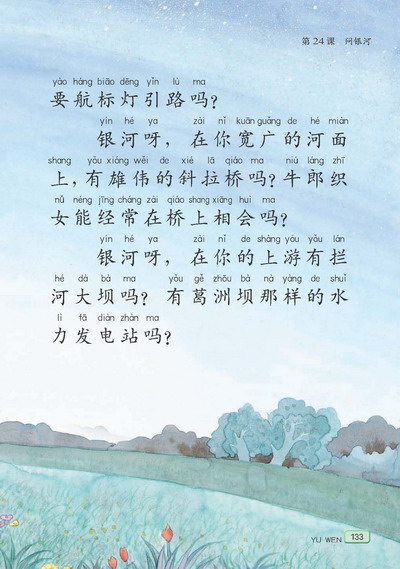 第24课 问银河
yáo háng biāo dēng yǐn lù ma
要航标灯引路吗？
yín hé ya zài nǐ kuān guǎng de hé miàn
银河呀，在你宽广的河面
shang yǒu xióng wěi de xié lā qiáo ma niú láng zhī
上，有雄伟的斜拉桥吗？牛郎织
nǚ néng jīng cháng zài qiáo shang xiāng huì ma
女能经常在桥上相会吗？
yín hé ya zài nǐ de shàng yóu yǒu lán
银河呀，在你的上游有拦
hé dà bà ma yǒu gě zhōu bà nà yàng de shuǐ
河大坝吗？有葛洲坝那样的水
lì fā diàn zhàn ma
力发电站吗？
YU WEN 133